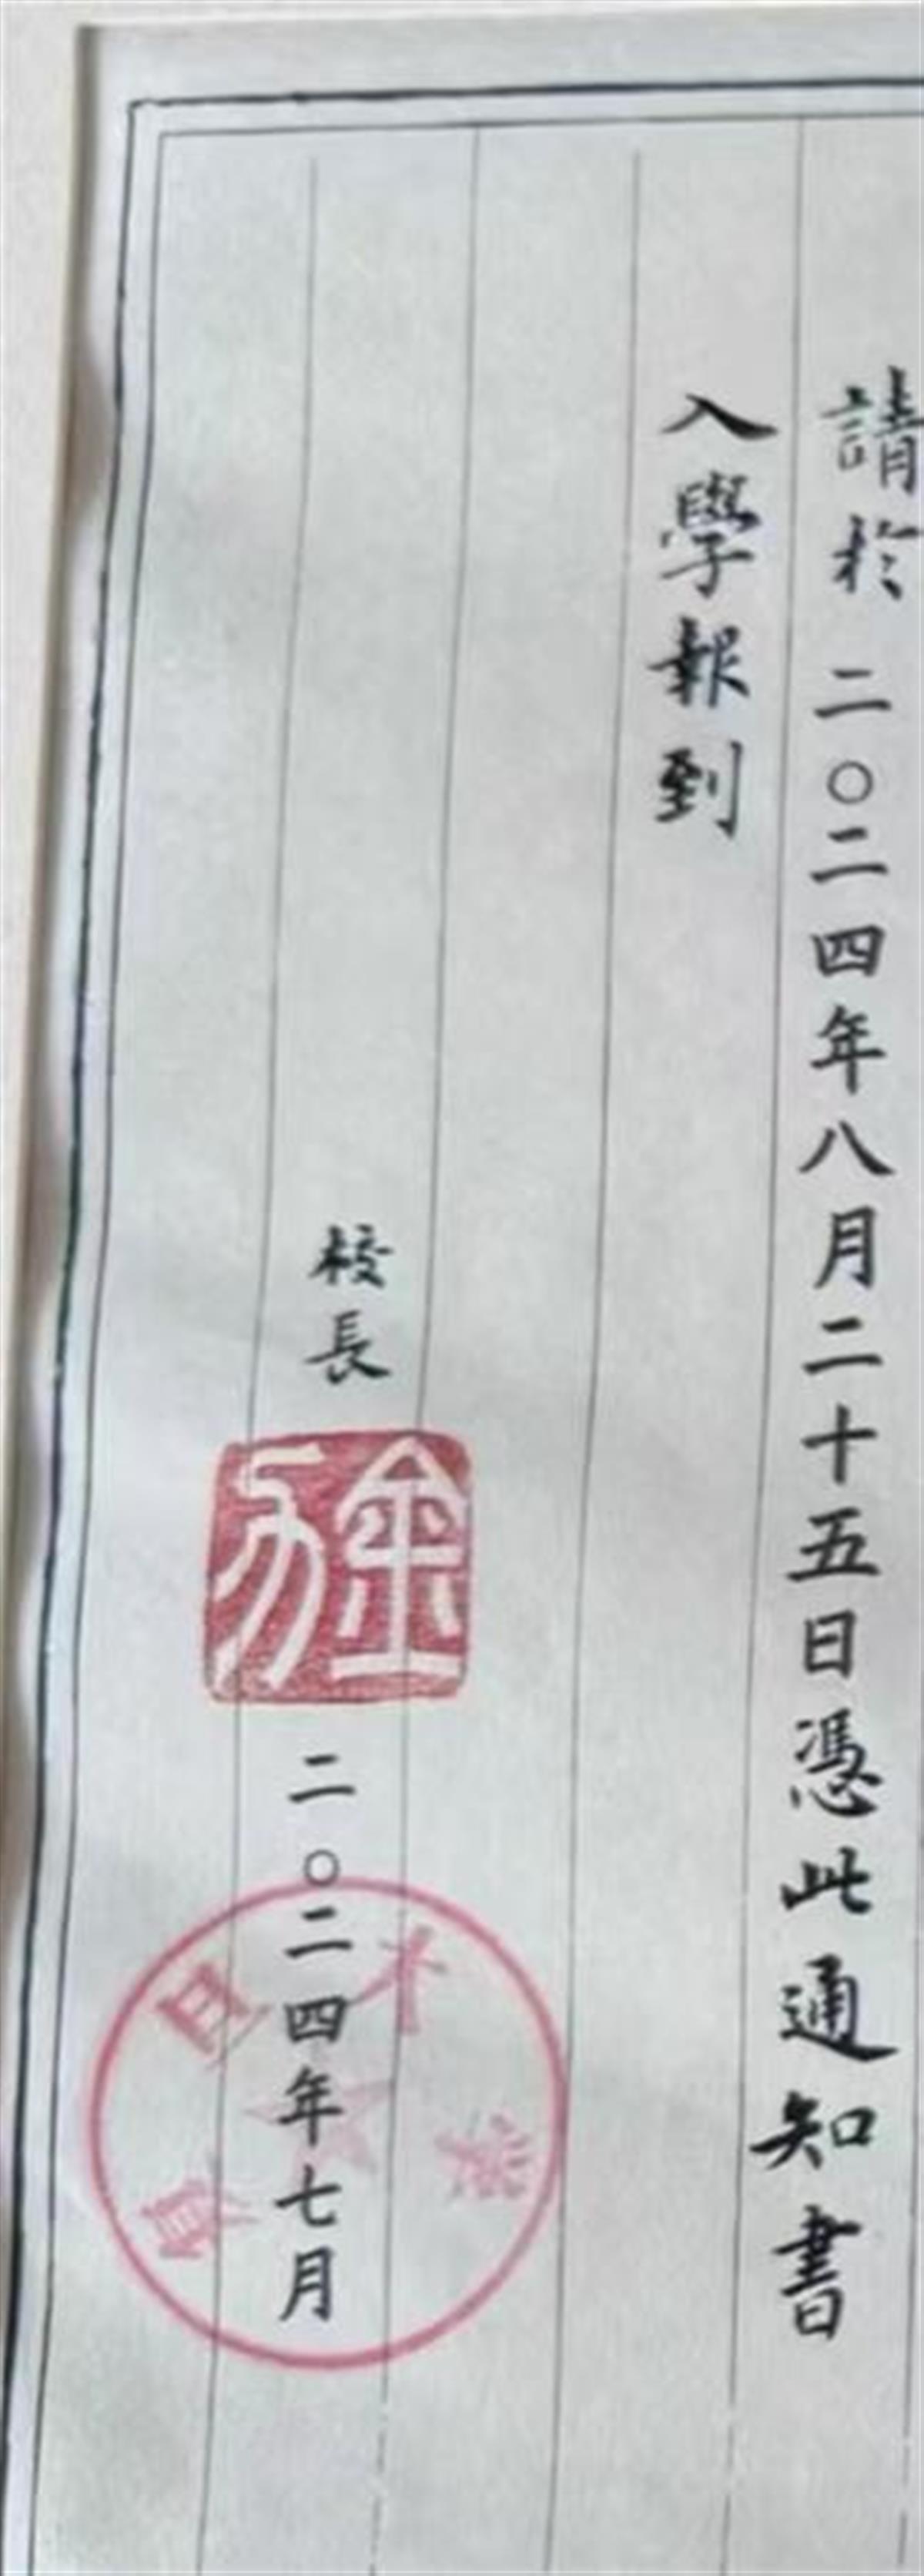 請於二〇二四年八月二十五日憑此通知書
入學報到
校長
金力
二〇二四年七月